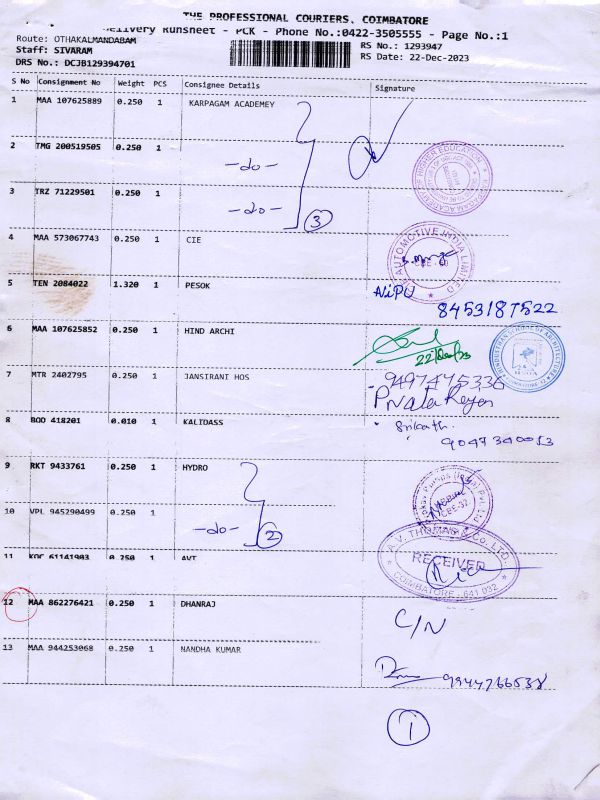 THE PROFESSIONAL COURIERS, COIMBATORE
Delivery Runsheet - PCK - Phone No.:0422-3505555 - Page No.:1
Route: OTHAKALMANDABAM
RS No.: 1293947
Staff: SIVARAM
RS Date: 22-Dec-2023
DRS No.: DCJB129394701
S No Consignment No Weight PCS Consignee Details Signature
1 MAA 107625889 0.250 1 KARPAGAM ACADEMEY
2 TMG 200519505 0.250 1 -do-
3 TRZ 71229501 0.250 1 -do- 3
4 MAA 573067743 0.250 1 CIE
AUTOMOTIVE INDIA LIMITED
5 TEN 2084022 1.320 1 PESOK
NiPU
8453187522
6 MAA 107625852 0.250 1 HIND ARCHI
22/Dec/23
7 MTR 2402795 0.250 1 JANSIRANI HOS
9497475336
8 BOD 418201 0.010 1 KALIDASS
Srikath.
9047340013
9 RKT 9433761 0.250 1 HYDRO
10 VPL 945290499 0.250 1 -do- 2
11 KOC 61141903 0.250 1 AVT
A.V. THOMAS & CO. LTD.
RECEIVED
COIMBATORE - 641 032
12 MAA 862276421 0.250 1 DHANRAJ
C/N
13 MAA 944253068 0.250 1 NANDHA KUMAR
9944766538
1